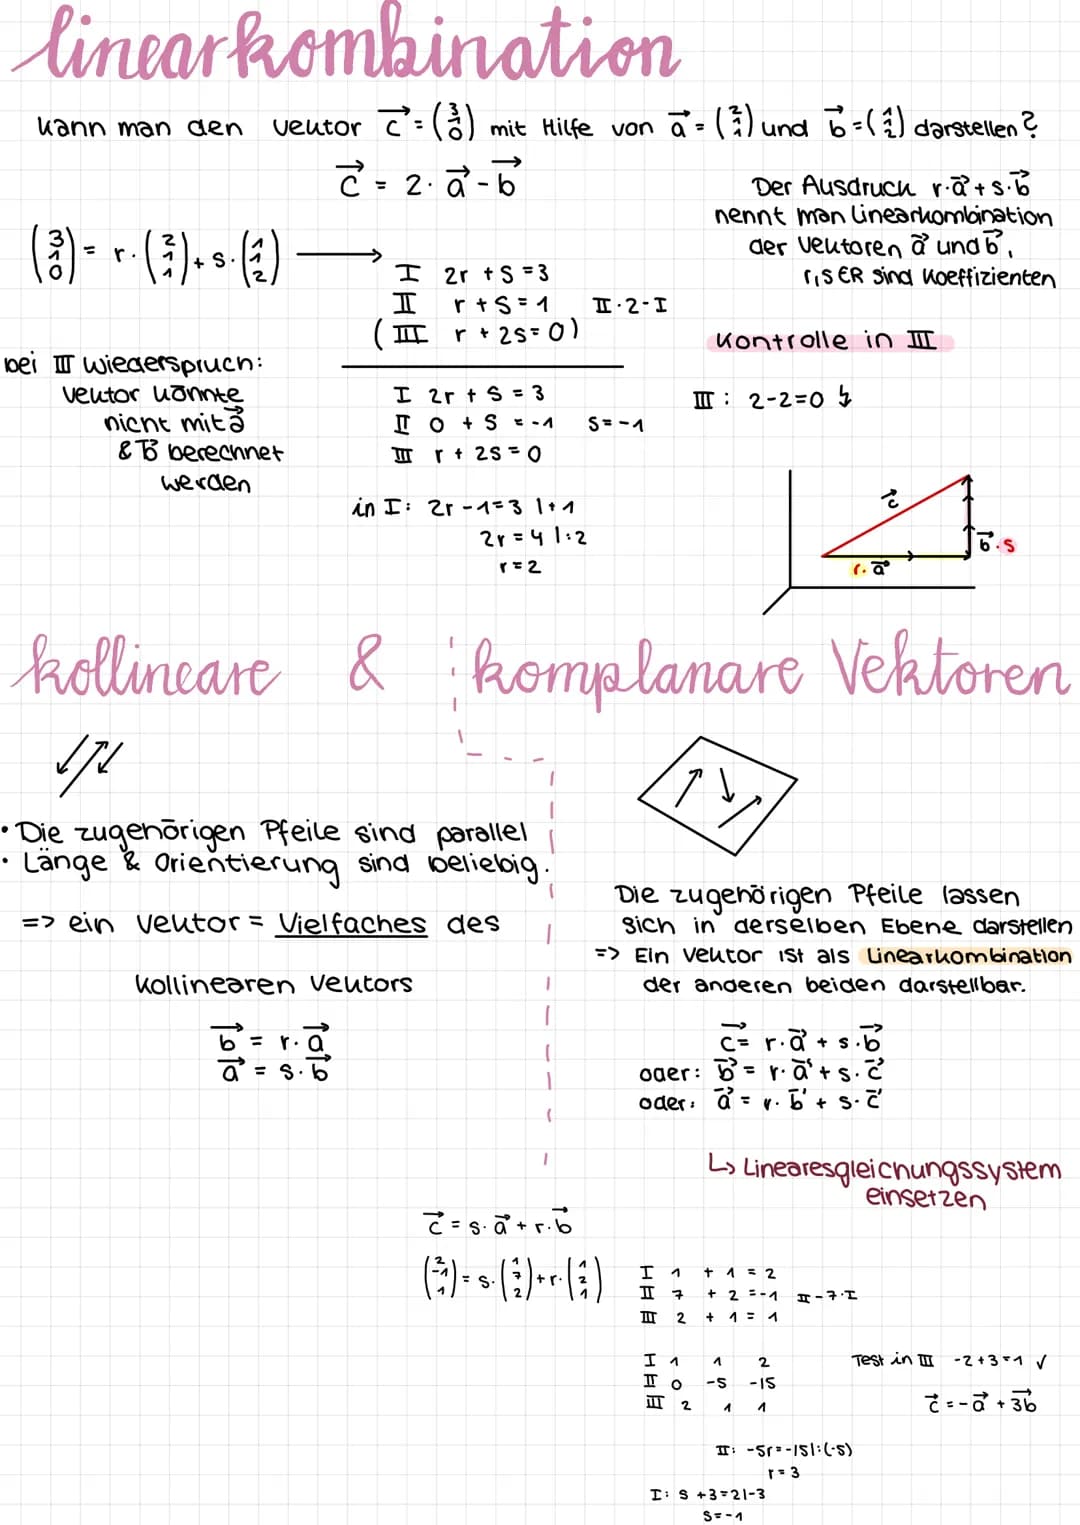 linearkombination
kann man den Vektor c⃗ = (3 1 0) mit Hilfe von a⃗ = (2 1 1) und b⃗ = (1 1 2) darstellen?
c⃗ = 2 · a⃗ - b⃗
Der Ausdruck r·a⃗ + s·b⃗
nennt man Linearkombination
der Vektoren a⃗ und b⃗,
r,s ∈ R sind Koeffizienten
(3 1 0) = r · (2 1 1) + s · (1 1 2) ⟶
I 2r + s = 3
II r + s = 1 II·2-I
(III r + 2s = 0)
Kontrolle in III
III: 2-2=0 ↯
bei III Wiederspruch:
Vektor könnte
nicht mit a⃗
& b⃗ berechnet
werden
I 2r + s = 3
II 0 + s = -1 s = -1
III r + 2s = 0
in I: 2r - 1 = 3 |+1
2r = 4 |:2
r = 2
c⃗
b⃗ · s
r · a⃗
kollineare & komplanare Vektoren
• Die zugehörigen Pfeile sind parallel
• Länge & Orientierung sind beliebig.
=> ein Vektor = Vielfaches des
kollinearen Vektors
b⃗ = r · a⃗
a⃗ = s · b⃗
Die zugehörigen Pfeile lassen
sich in derselben Ebene darstellen
=> Ein Vektor ist als Linearkombination
der anderen beiden darstellbar.
c⃗ = r · a⃗ + s · b⃗
oder: b⃗ = r · a⃗ + s · c⃗
oder: a⃗ = r · b⃗ + s · c⃗
↳ Linearesgleichungssystem
einsetzen
c⃗ = s · a⃗ + r · b⃗
(2 -1 1) = s · (1 7 2) + r · (1 2 1)
I 1 + 1 = 2
II 7 + 2 = -1 II - 7·I
III 2 + 1 = 1
I 1 1 2
II 0 -5 -15
III 2 1 1
Test in III -2+3=1 ✓
c⃗ = -a⃗ + 3b⃗
II: -5r = -15 |:(-5)
r = 3
I: s + 3 = 2 |-3
s = -1